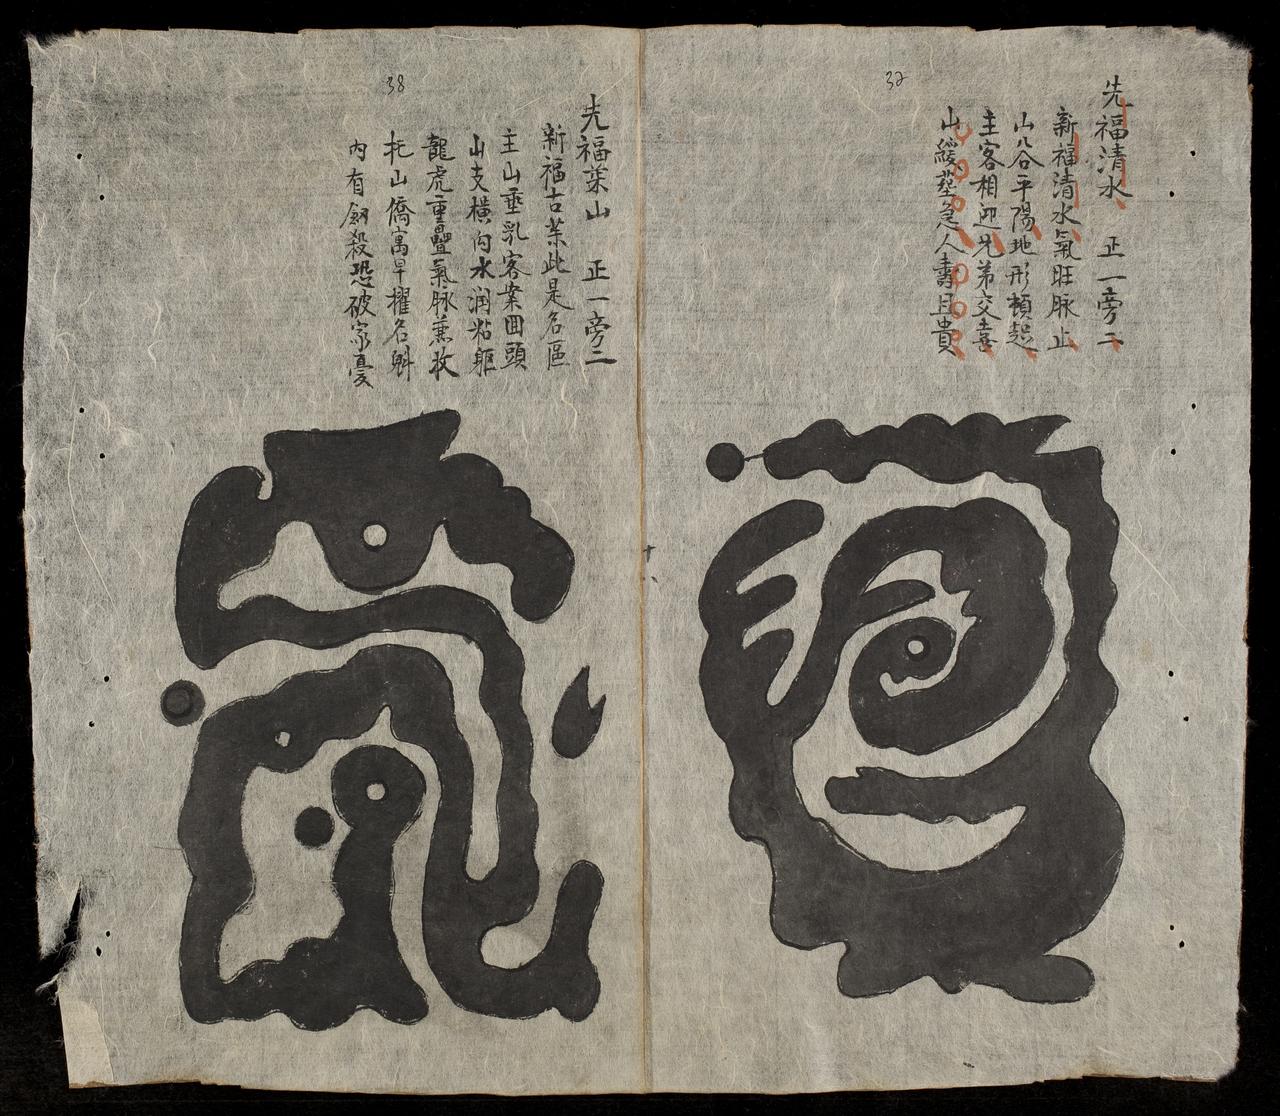 32
先福清水 正一旁二
新福清水氣旺脉止
山八谷平陽地形頓起
主客相迎兄弟交喜
山緩葬急人壽且貴
38
先福葉山 正一旁二
新福古葉此是名區
主山垂乳客案回頭
山支橫內水潤粘軀
龍虎重疊氣脉兼收
托山僑寓早擢名魁
內有劍殺恐破家憂